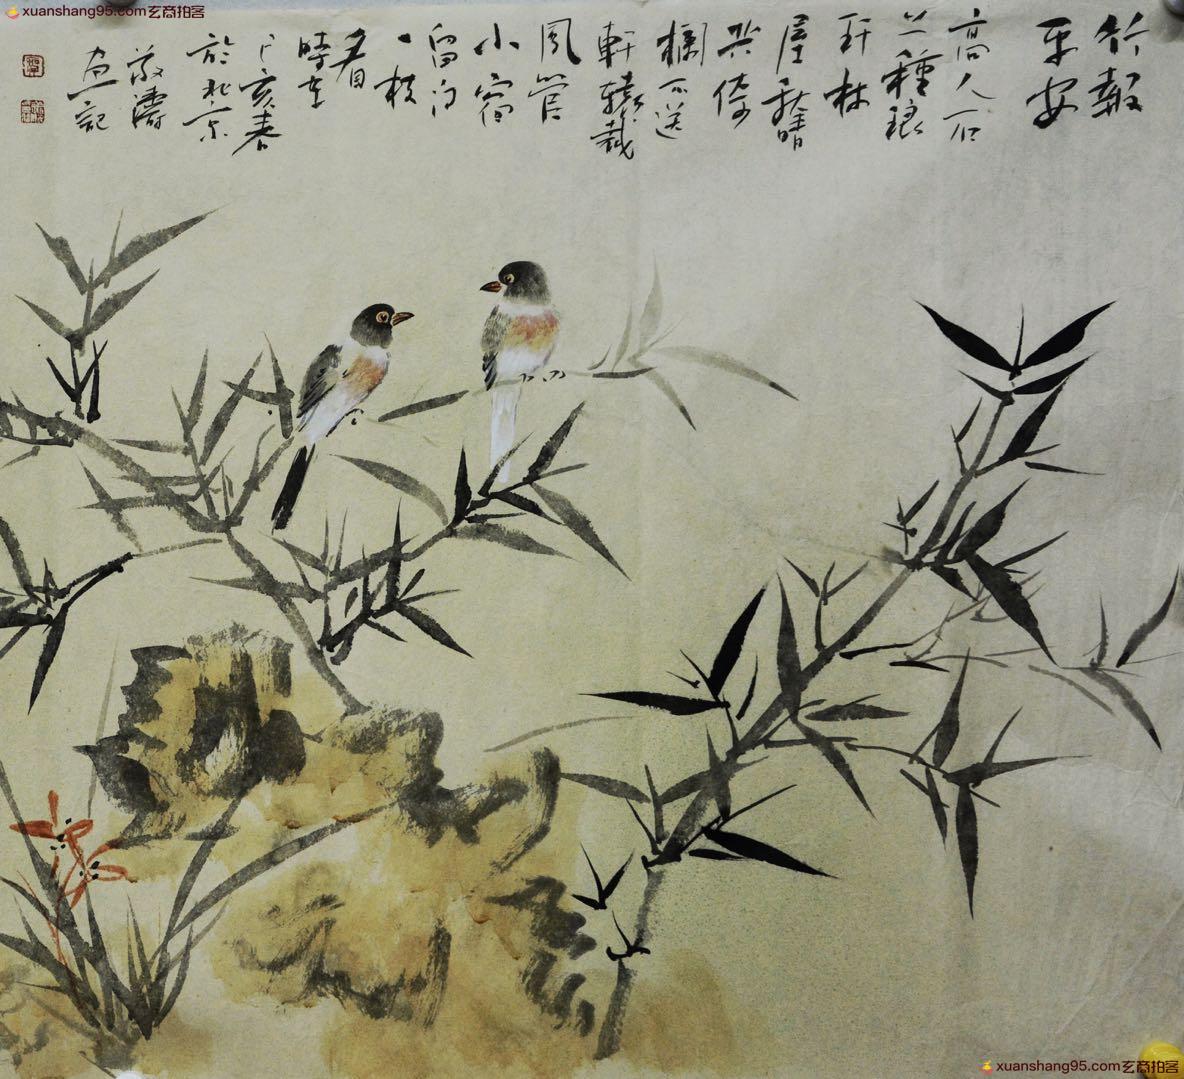 xuanshang95.com玄商拍客
竹報
平安
高人石
上種琅
玕林
屋秋晴
共倚
欄不送
軒轅裁
鳳管
小窗
留得
一枝
看
時在
丁亥春
於北京
敬濤
画記
xuanshang95.com玄商拍客